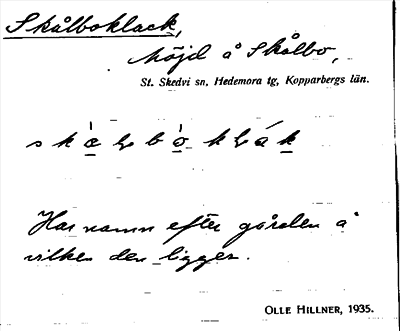 Skålboklack,
Höjd å Skålbo,
St. Skedvi sn, Hedemora tg, Kopparbergs län.
Har namn efter gården å
vilken den ligger.
OLLE HILLNER, 1935.